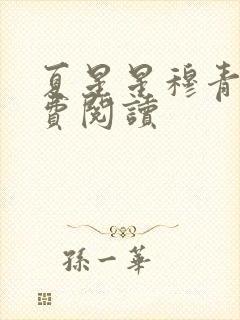 夏星星穆青
費閱讀
孫一華